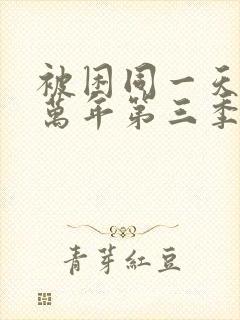 被困同一天
萬年第三季
青芽紅豆